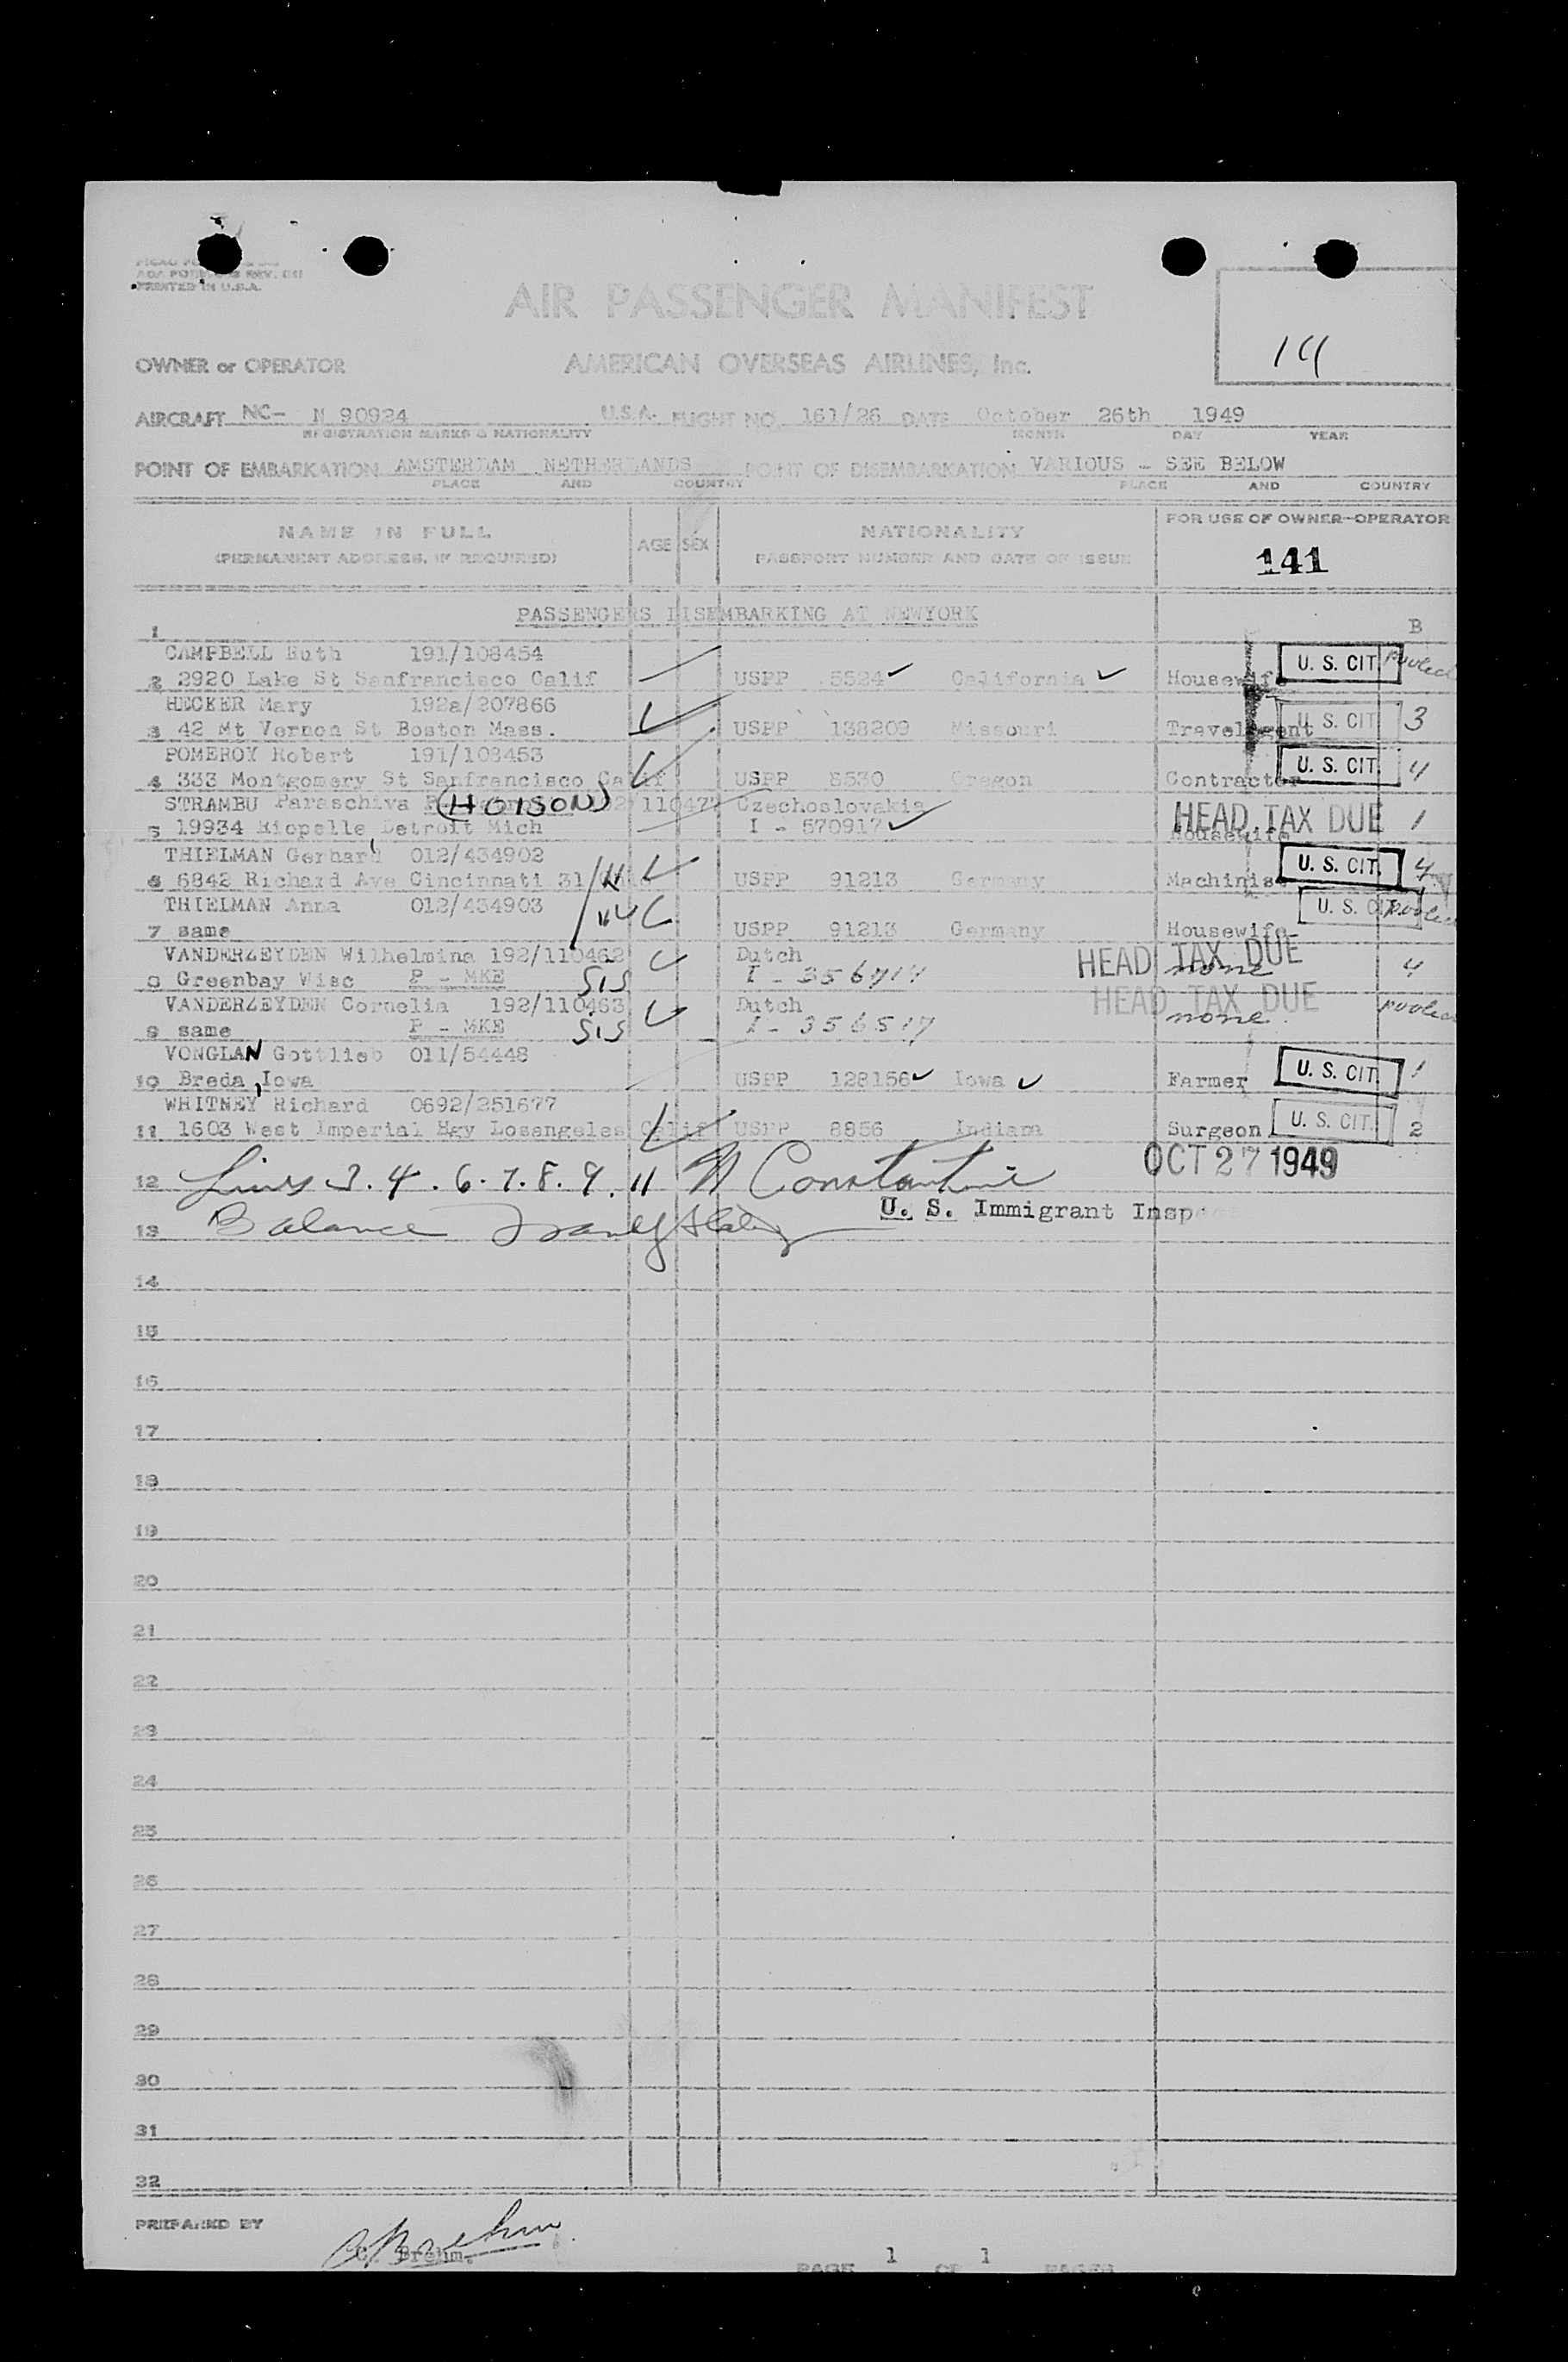 PRINTED IN U.S.A.
AIR PASSENGER MANIFEST
OWNER or OPERATOR AMERICAN OVERSEAS AIRLINES, Inc.
14
AIRCRAFT NC- N 90924 U.S.A. FLIGHT NO. 161/26 DATE October 26th 1949
REGISTRATION MARKS & NATIONALITY MONTH DAY YEAR
POINT OF EMBARKATION AMSTERDAM NETHERLANDS POINT OF DISEMBARKATION VARIOUS - SEE BELOW
PLACE AND COUNTRY PLACE AND COUNTRY
NAME IN FULL AGE SEX NATIONALITY FOR USE OF OWNER-OPERATOR
(PERMANENT ADDRESS, IF REQUIRED) PASSPORT NUMBER AND DATE OF ISSUE
141
PASSENGERS DISEMBARKING AT NEWYORK
1 B
CAMPBELL Ruth 191/108454
2 2920 Lake St Sanfrancisco Calif USPP 5524 California Housewife U. S. CIT
HECKER Mary 192a/207866
3 42 Mt Vernon St Boston Mass. USPP 138209 Missouri Travelagent U. S. CIT 3
POMEROY Robert 191/108453
4 333 Montgomery St Sanfrancisco Calif USPP 8530 Oregon Contractor U. S. CIT. 4
STRAMBU Paraschiva (HOISON) 11047 Czechoslovakia
5 19934 Riopelle Detroit Mich I - 570917 Housewife HEAD TAX DUE 1
THIELMAN Gerhard 012/434902
6 6842 Richard Ave Cincinnati 31 USPP 91213 Germany Machinist U. S. CIT. 4
THIELMAN Anna 012/434903
7 same USPP 91213 Germany Housewife U. S. CIT.
VANDERZEYDEN Wilhelmina 192/110462 Dutch HEAD TAX DUE
8 Greenbay Wisc P - MKE SIS I - 356714 none 4
VANDERZEYDEN Cornelia 192/110463 Dutch HEAD TAX DUE
9 same P - MKE SIS I - 356517 none
VONGLAN Gottlieb 011/54448
10 Breda, Iowa USPP 128156 Iowa Farmer U. S. CIT. 1
WHITNEY Richard 0692/251677
11 1603 West Imperial Hgy Losangeles Calif USPP 8856 Indiana Surgeon U. S. CIT. 2
OCT 27 1949
12 Lines 3. 4. 6. 7. 8. 9. 11 N Constantine
U. S. Immigrant Inspe
13 Balance
14
15
16
17
18
19
20
21
22
23
24
25
26
27
28
29
30
31
32
PREPARED BY C. Brehm.
PAGE 1 OF 1 PAGES